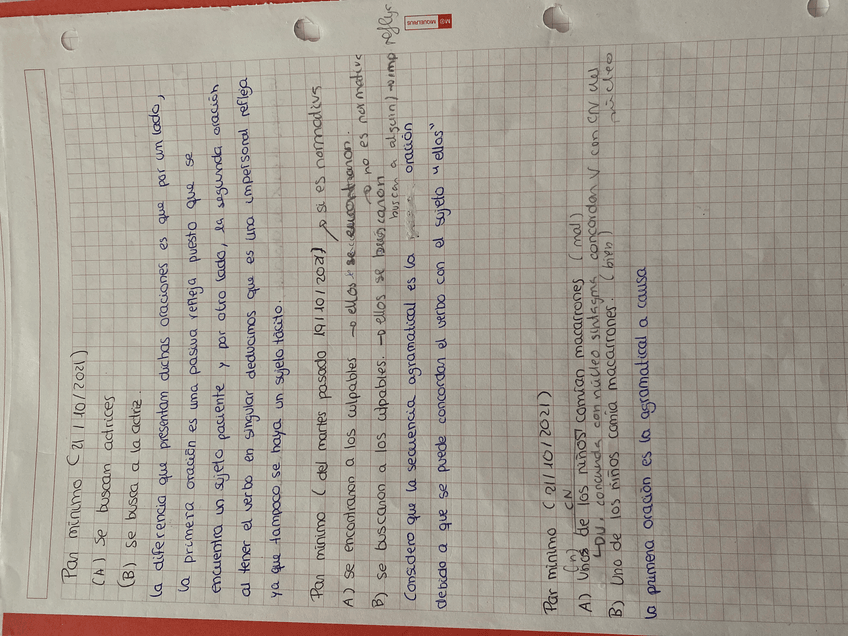 Par mínimo (21/10/2021)
(A) Se buscan actrices
(B) Se busca a la actriz.
la diferencia que presentan dichas oraciones es que por un lado,
la primera oración es una pasiva refleja puesto que se
encuentra un sujeto paciente y por otro lado, la segunda oración
al tener el verbo en singular deducimos que es una impersonal refleja
ya que tampoco se haya un sujeto tácito.
Par mínimo (del martes pasado 19/10/2021) → si es normativa
A) se encontraron a los culpables → ellos se encontraron.
→ no es normativa
B) se buscaron a los culpables. → ellos se buscaron
buscan a alguien) → imp refleja
Considero que la secuencia agramatical es la oración
debido a que se puede concordar el verbo con el sujeto "ellos"
Par mínimo (21/10/2021)
(n) CN
A) Unos de los niños comían macarrones (mal)
DU, concuerda con núcleo sintagma, concordan V con CN del núcleo
B) Uno de los niños comía macarrones. (bien)
la primera oración es la agramatical a causa
MIQUELRIUS